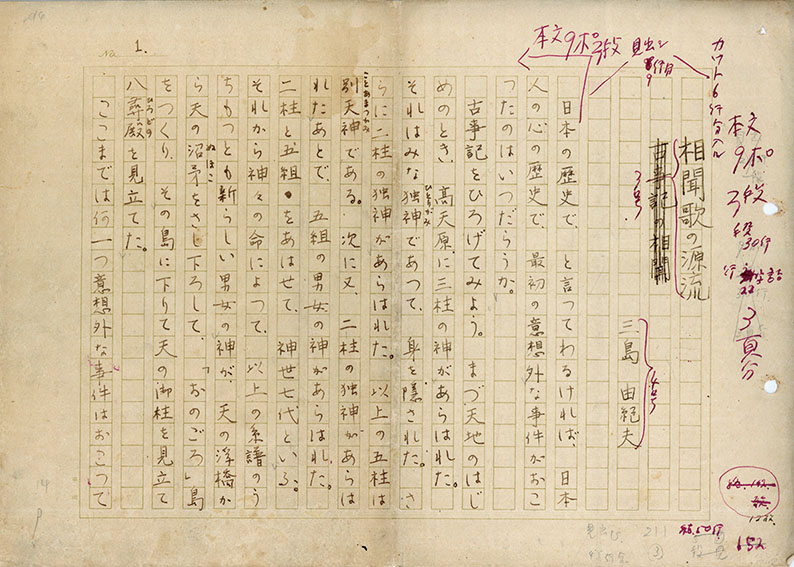 カット6行分入ル
本文9ポ
3段
3頁分
見出シ
本文9ポ3段
1.
相聞歌の源流
古事記の相聞
3号
三島由紀夫
4号
日本の歴史で、と言つてわるければ、日本
人の心の歴史で、最初の意想外な事件がおこ
つたのはいつだらうか。
古事記をひろげてみよう。まづ天地のはじ
めのとき、高天原に三柱の神があらはれた。
それはみな独神であつて、身を隠された。さ
ひとりがみ
らに二柱の独神があらはれた。以上の五柱は
別天神である。次に又、二柱の独神があらは
ことあまつかみ
れたあとで、五組の男女の神があらはれた。
二柱と五組をあはせて、神世七代といふ。
それから神々の命によつて、以上の系譜のう
ちもつとも新らしい男女の神が、天の浮橋か
ら天の沼矛をさし下ろして、「おのごろ」島
ぬほこ
をつくり、その島に下りて天の御柱を見立て
八尋殿を見立てた。
ひろどの
ここまでは何一つ意想外な事件はおこつて